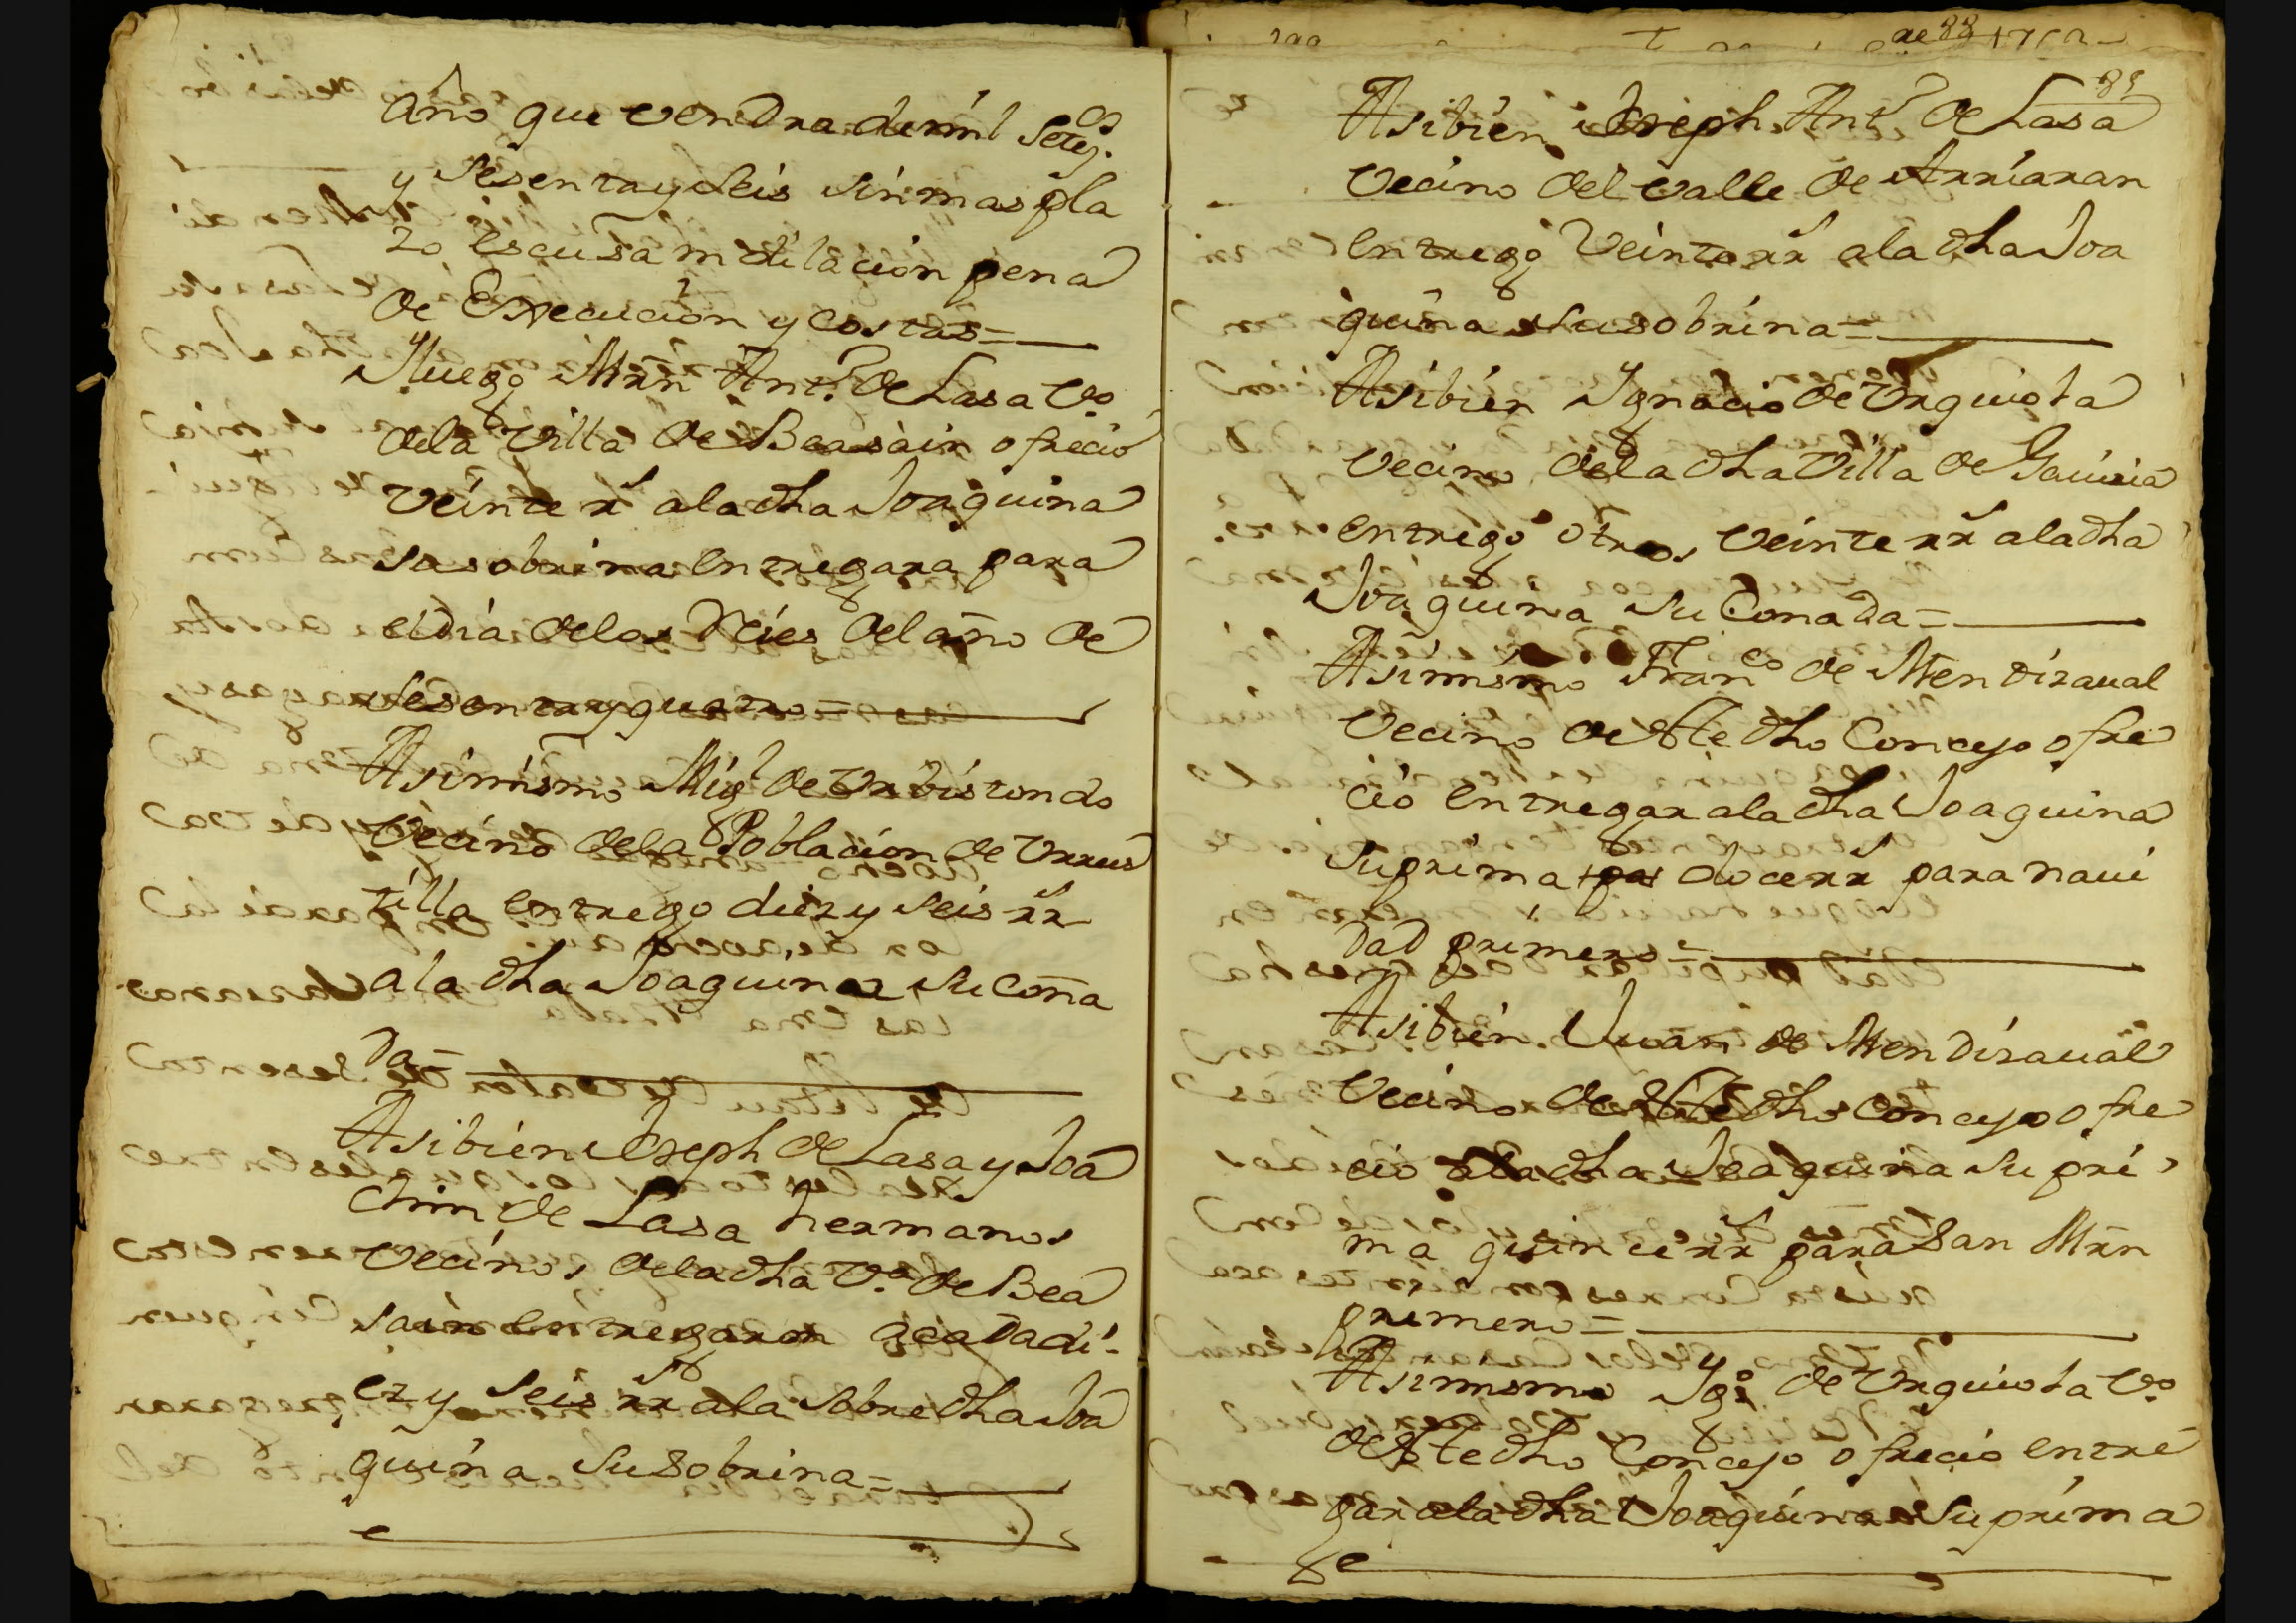 Año que vendra de mil Setez.os
y Sesenta y Seis sin mas pla
zo escusa ni dilacion pena
de Execucion y costas=
Y luego Mrn Ant.o de Lasa V.o
dela Villa de Beasain ofrecio
veinte rs ala dha Joaquina
su sobrina entregara para
el dia de los Reies del año de
sesenta y quatro=
Asimismo Migl de Urbistondo
Vecino dela Poblacion de Urres
tilla entrego diez y seis rrs
ala dha Joaquina su coña
da=
Asibien Joseph de Lasa y Joa
chin de Lasa hermanos
vecinos dela dha V.a de Bea
sain entregaron a cada di-
ez y seis rrs ala sobre dha Joa
quina su sobrina=
85
Asibien Joseph Ant.o de Lasa
Vecino del valle de Arriaran
entrego Veinte rrs ala dha Joa
quina su sobrina=
Asibien Ygnacio de Urquiola
vecino dela dha Villa de Gaviria
entrego otros veinte rrs ala dha
Joaquina su Conada=
Asimismo Franco de Mendizaual
Vecino de Ste dho Concejo ofre
cio entregar ala dha Joaquina
su prima doce rrs para naui
dad primero=
Asibien Juan de Mendizaual
Vecino de Ste dho Concejo ofre
cio ala dha Joaquina su pri
ma quince rrs para San Mrn
primero=
Asimismo Ygo de Urquiola V.o
de Ste dho Concejo ofrecio entre
gar ala dha Joaquina su prima